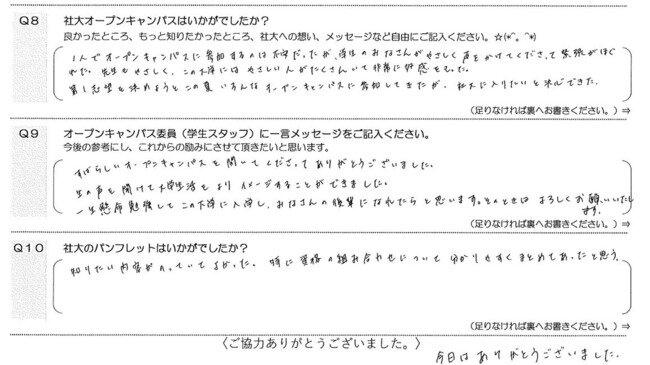 Q8 社大オープンキャンパスはいかがでしたか？
良かったところ、もっと知りたかったところ、社大への想い、メッセージなど自由にご記入ください。☆(*^。^*)
1人でオープンキャンパスに参加するのは不安だったが、学生のみなさんがやさしく声をかけてくださって緊張がほぐ
れた。先生もやさしく、この大学にはやさしい人がたくさんいて非常に好感をもった。
第1志望を決めようとこの夏いろんなオープンキャンパスに参加してきたが、社大に入りたいと決心できた。
(足りなければ裏へお書きください。) ⇒
Q9 オープンキャンパス委員（学生スタッフ）に一言メッセージをご記入ください。
今後の参考にし、これからの励みにさせて頂きたいと思います。
すばらしいオープンキャンパスを開いてくださってありがとうございました。
生の声を聞けて大学生活をよりイメージすることができました。
一生懸命勉強してこの大学に入学し、みなさんの後輩になれたらと思います。そのときはよろしくお願いいたし
ます。
(足りなければ裏へお書きください。) ⇒
Q10 社大のパンフレットはいかがでしたか？
知りたい内容がのっていてよかった。特に資格の組み合わせについて分かりやすくまとめてあったと思う。
(足りなければ裏へお書きください。) ⇒
〈ご協力ありがとうございました。〉
今日はありがとうございました。